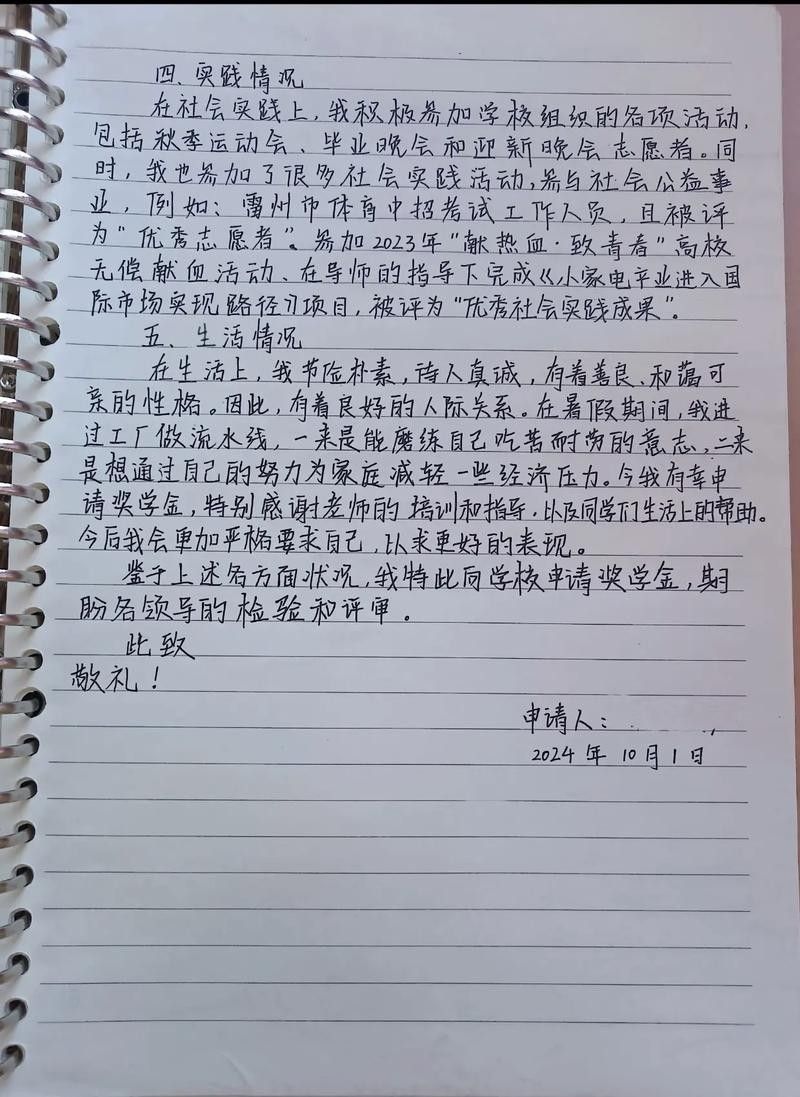 四、实践情况
在社会实践上，我积极参加学校组织的各项活动，
包括秋季运动会、毕业晚会和迎新晚会志愿者。同
时，我也参加了很多社会实践活动，参与社会公益事
业，例如：雷州市体育中招考试工作人员，且被评
为“优秀志愿者”。参加2023年“献热血·致青春”高校
无偿献血活动、在导师的指导下完成《小家电产业进入国
际市场实现路径》项目，被评为“优秀社会实践成果”。
五、生活情况
在生活上，我节俭朴素，待人真诚，有着善良、和蔼可
亲的性格。因此，有着良好的人际关系。在暑假期间，我进
过工厂做流水线，一来是能磨练自己吃苦耐劳的意志，二来
是想通过自己的努力为家庭减轻一些经济压力。今我有幸申
请奖学金，特别感谢老师的培训和指导，以及同学们生活上的帮助。
今后我会更加严格要求自己，以求更好的表现。
鉴于上述各方面状况，我特此向学校申请奖学金，期
盼各领导的检验和评审。
此致
敬礼！
申请人：
2024年10月1日